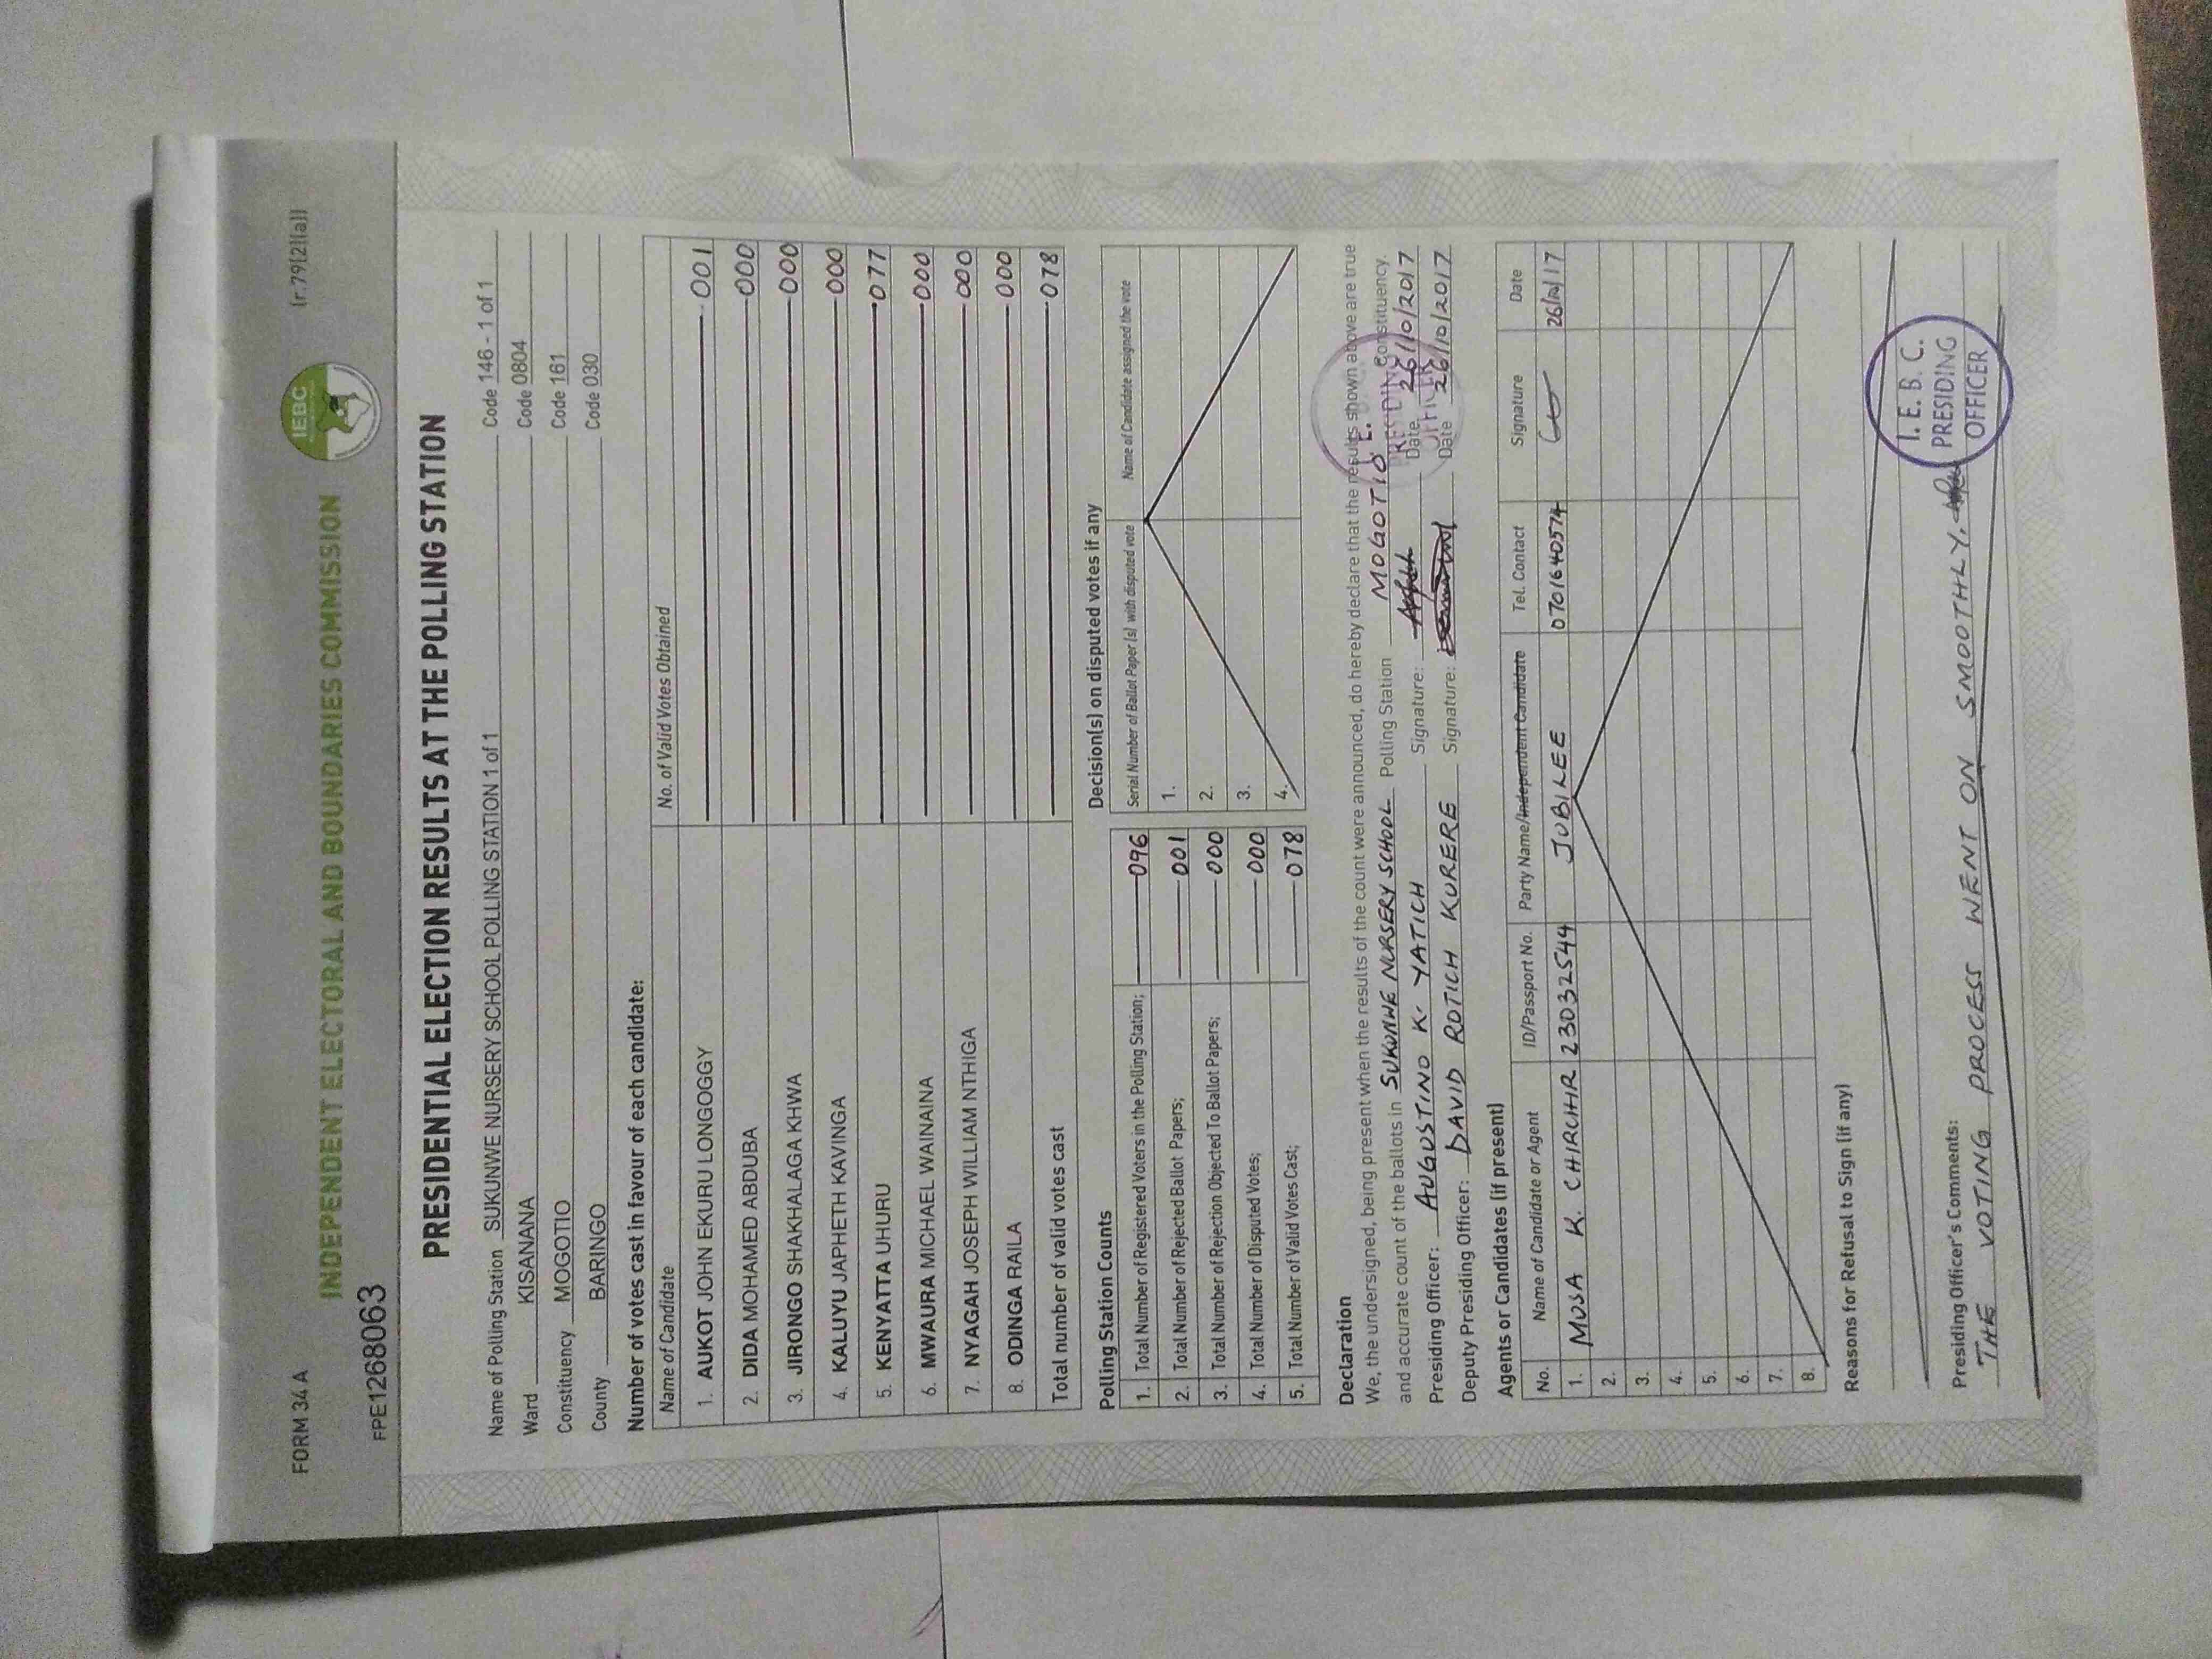 FORM 34 A
(r.79(2)(a))
IEBC
INDEPENDENT ELECTORAL AND BOUNDARIES COMMISSION
FPE1268063
PRESIDENTIAL ELECTION RESULTS AT THE POLLING STATION
Name of Polling Station SUKUNWE NURSERY SCHOOL POLLING STATION 1 of 1 Code 146 - 1 of 1
Ward KISANANA Code 0804
Constituency MOGOTIO Code 161
County BARINGO Code 030
Number of votes cast in favour of each candidate:
Name of Candidate No. of Valid Votes Obtained
1. AUKOT JOHN EKURU LONGOGGY 001
2. DIDA MOHAMED ABDUBA 000
3. JIRONGO SHAKHALAGA KHWA 000
4. KALUYU JAPHETH KAVINGA 000
5. KENYATTA UHURU 077
6. MWAURA MICHAEL WAINAINA 000
7. NYAGAH JOSEPH WILLIAM NTHIGA 000
8. ODINGA RAILA 000
Total number of valid votes cast 078
Polling Station Counts
1. Total Number of Registered Voters in the Polling Station; 096
2. Total Number of Rejected Ballot Papers; 001
3. Total Number of Rejection Objected To Ballot Papers; 000
4. Total Number of Disputed Votes; 000
5. Total Number of Valid Votes Cast; 078
Decision(s) on disputed votes if any
Serial Number of Ballot Paper (s) with disputed vote Name of Candidate assigned the vote
1.
2.
3.
4.
Declaration
We, the undersigned, being present when the results of the count were announced, do hereby declare that the results shown above are true
and accurate count of the ballots in SUKUNWE NURSERY SCHOOL Polling Station MOGOTIO Constituency.
Presiding Officer: AUGUSTINO K. YATICH Signature: Date 26/10/2017
Deputy Presiding Officer: DAVID ROTICH KURERE Signature: Date 26/10/2017
Agents or Candidates (if present)
No. Name of Candidate or Agent ID/Passport No. Party Name/Independent Candidate Tel. Contact Signature Date
1. MUSA K. CHIRCHIR 23032544 JUBILEE 0701640574 26/10/17
2.
3.
4.
5.
6.
7.
8.
Reasons for Refusal to Sign (if any)
Presiding Officer's Comments:
THE VOTING PROCESS WENT ON SMOOTHLY.
I. E. B. C.
PRESIDING
OFFICER